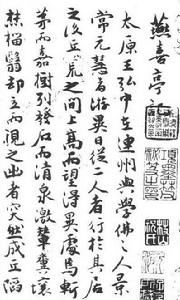 燕喜亭記
太原王弘中在連州與學佛之人景
常元慧者游異日從二人者行於其居
之後丘荒之間上高而望得異處焉斬
茅而嘉樹列發石而清泉激輦糞壤
燔椔翳却立而視之出者突然成丘陷